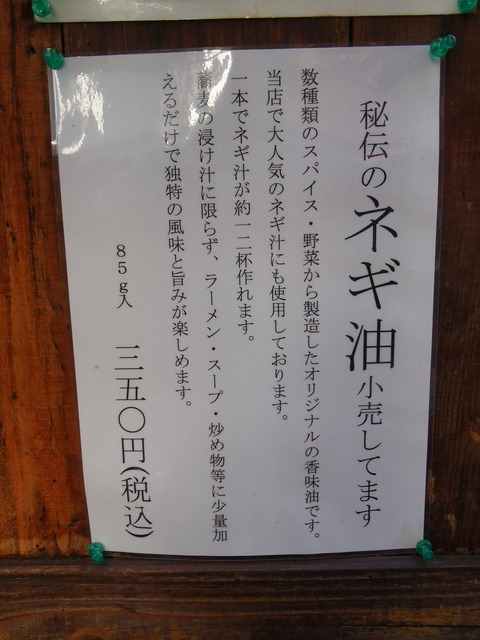 秘伝のネギ油小売してます
数種類のスパイス・野菜から製造したオリジナルの香味油です。
当店で大人気のネギ汁にも使用しております。
一本でネギ汁が約一二杯作れます。
蕎麦の浸け汁に限らず、ラーメン・スープ・炒め物等に少量加
えるだけで独特の風味と旨みが楽しめます。
85g入 三五〇円(税込)